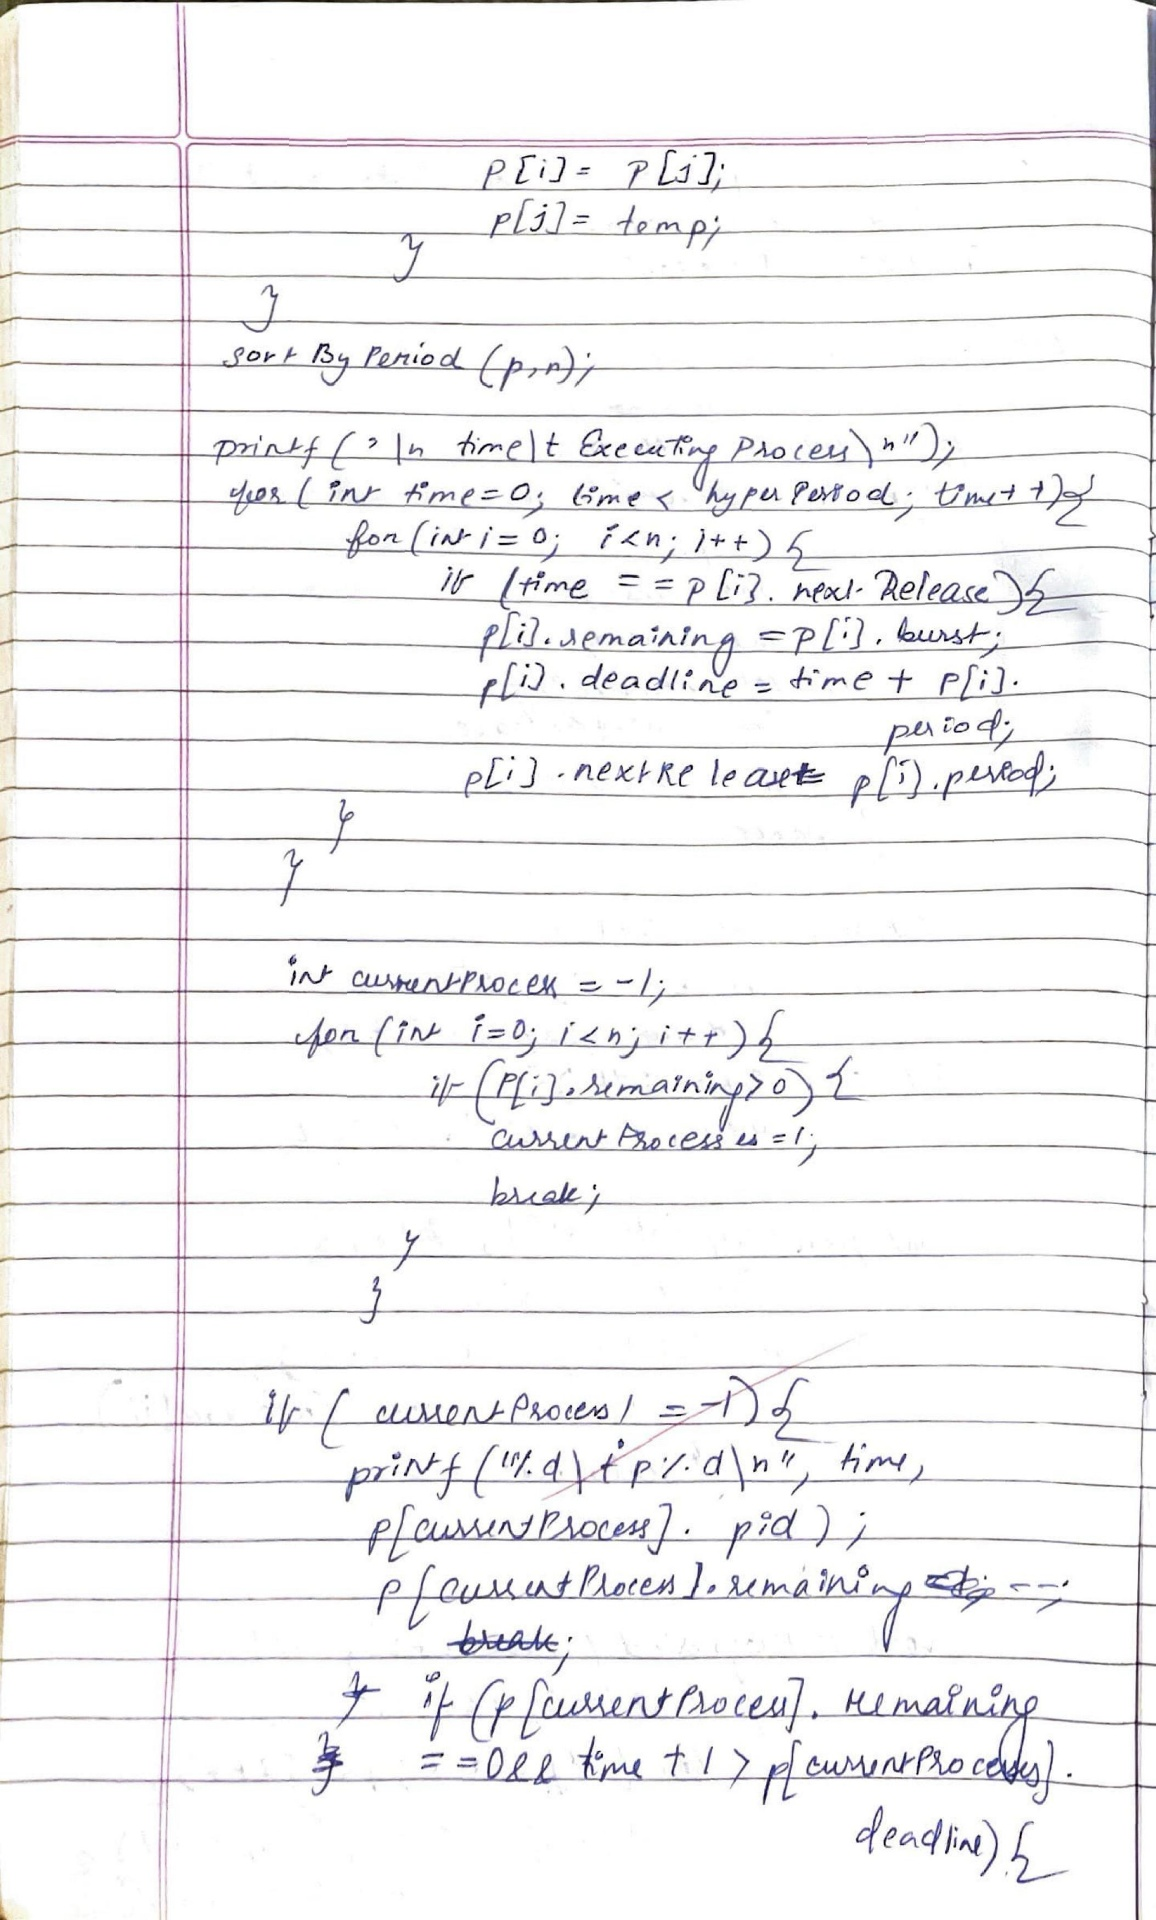 P[i] = P[j];
p[j] = temp;
}
}
sort By Period (p,n);
printf ("\n time\t Executing Process\n");
for ( int time=0; time < hyper Period; time++){
for (int i = 0; i<n; i++) {
if (time == P[i]. next Release){
p[i].remaining = P[i]. burst;
p[i]. deadline = time + P[i].
period;
p[i].nextRelease+= p[i].period;
}
}
int currentProcess = -1;
for (int i=0; i<n; i++) {
if (P[i].remaining>0) {
current Process = i;
break;
}
}
if ( current Process != -1) {
printf ("%d\t p%d\n", time,
p[currentProcess]. pid ) ;
p[current Process].remaining --;
break;
} if (p[current Process]. remaining
} ==0&& time +1 > p[current Process].
deadline) {